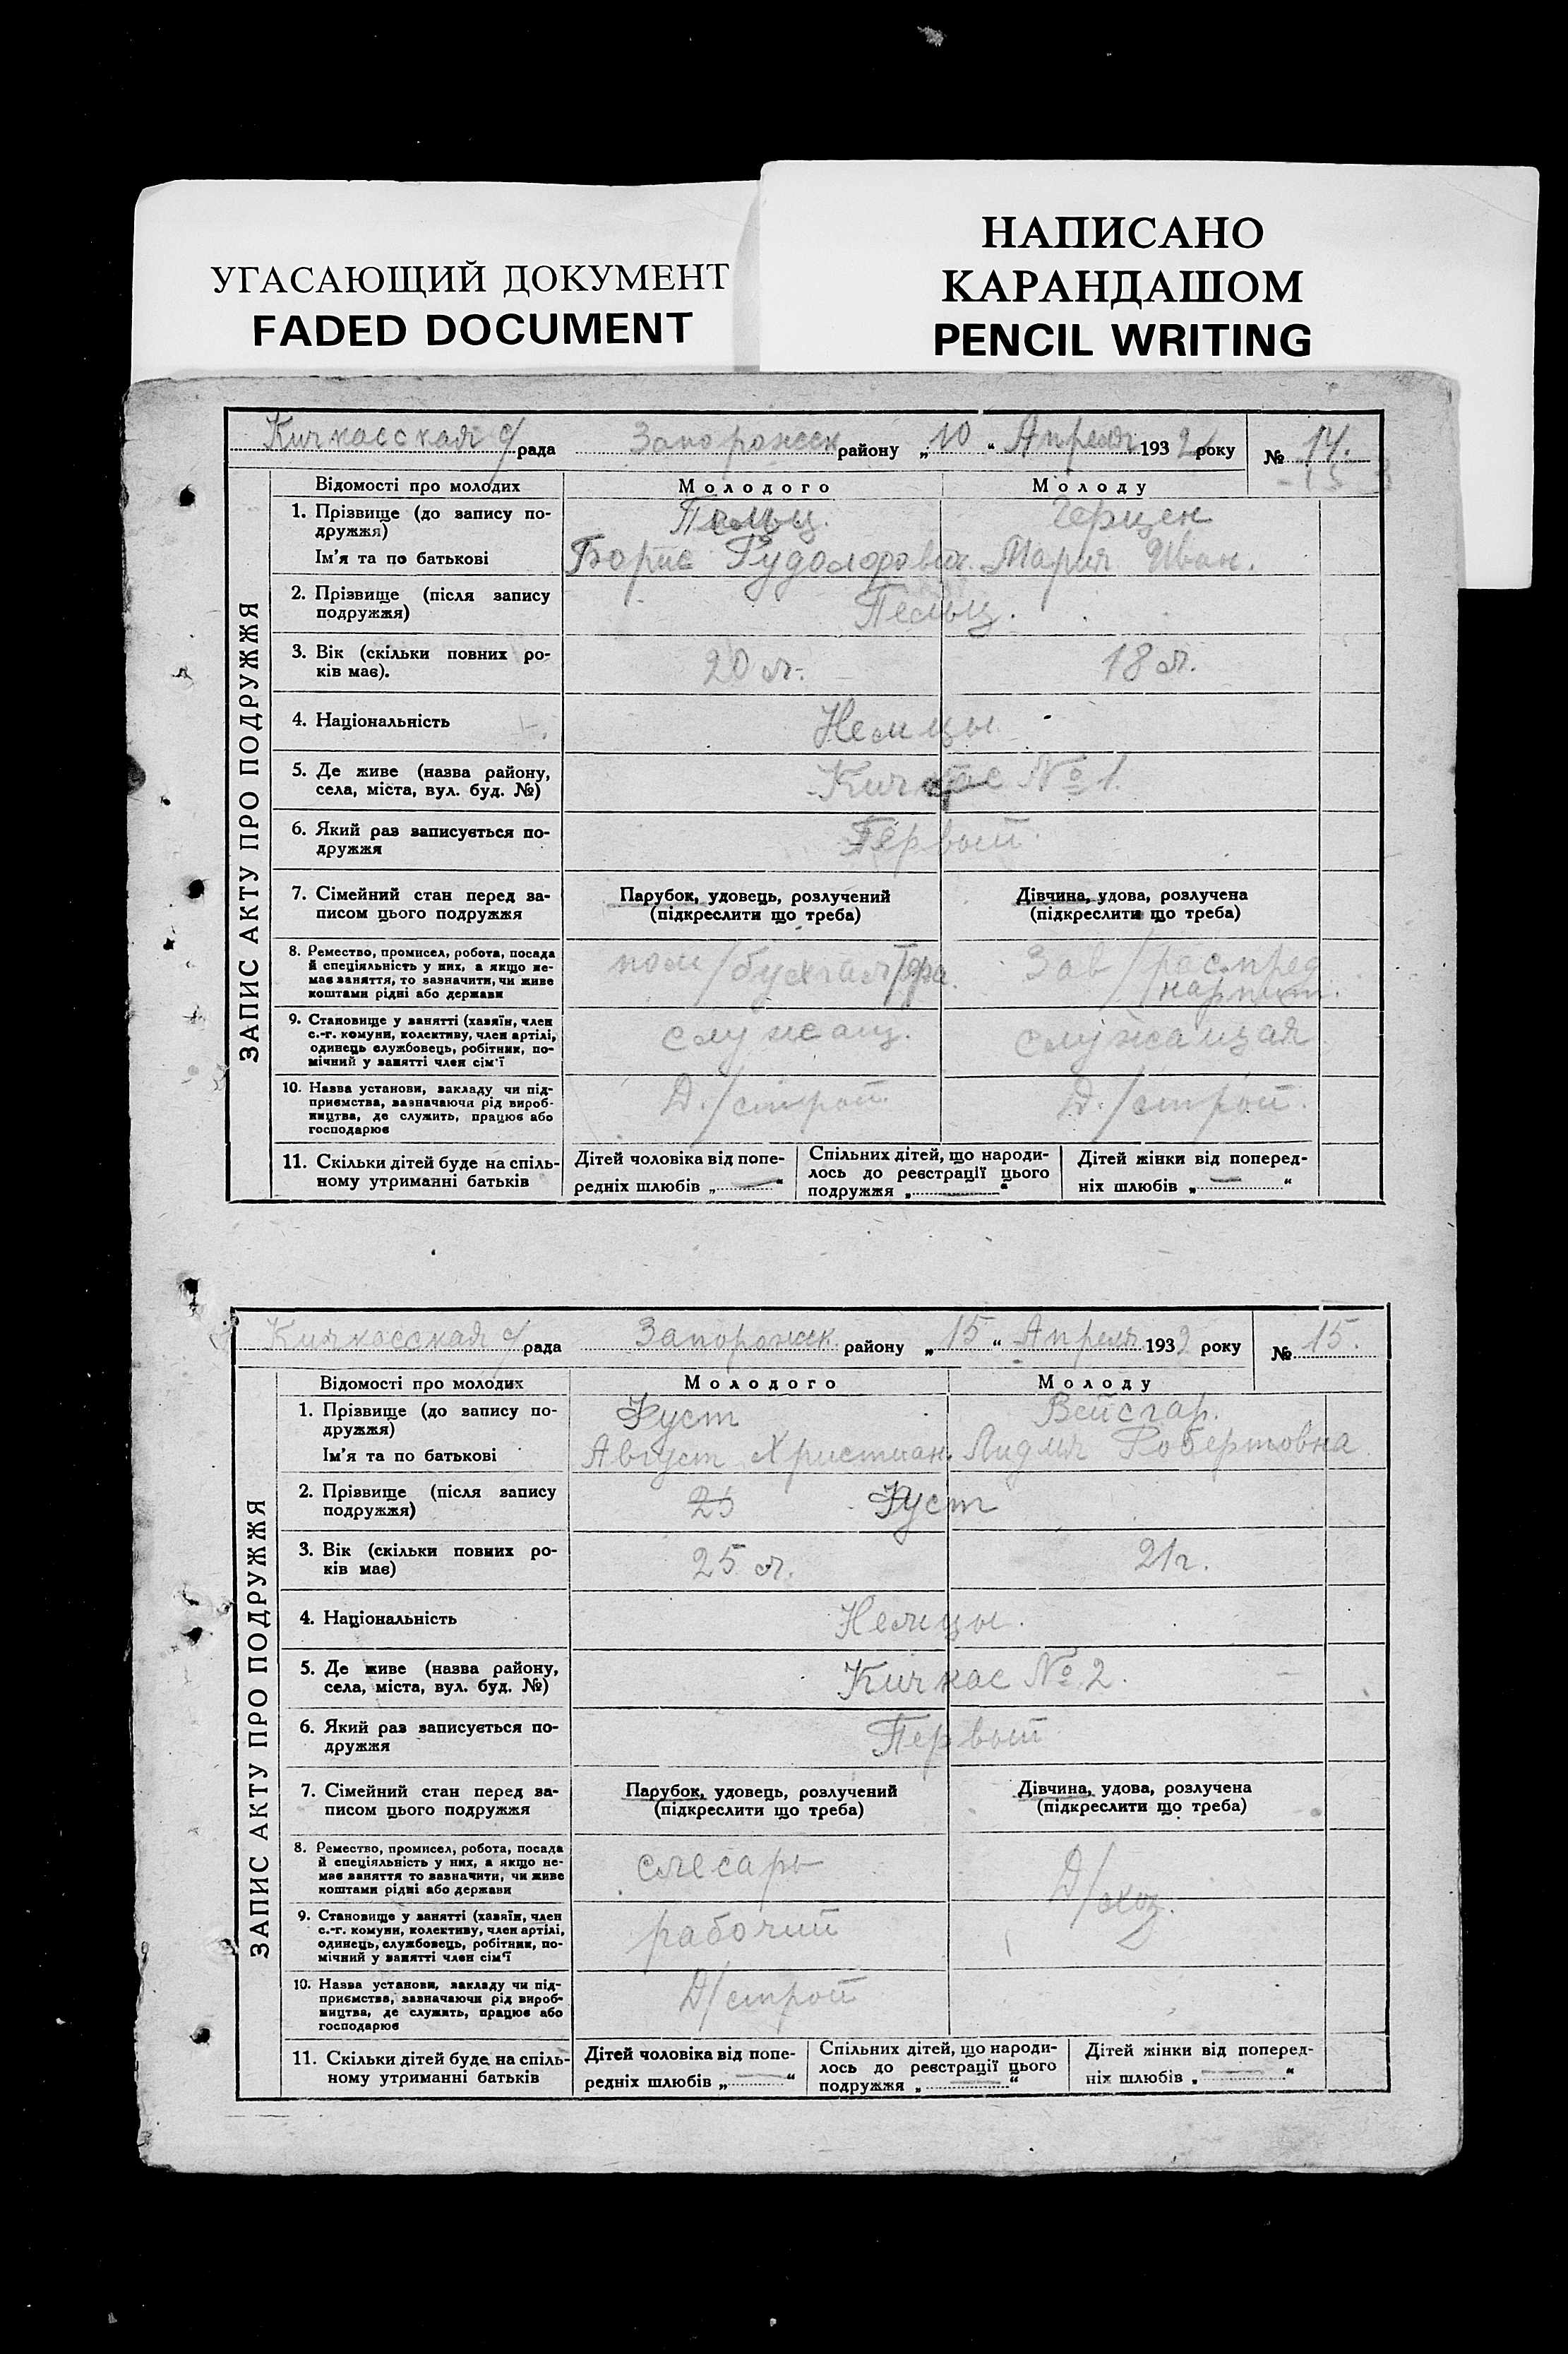 УГАСАЮЩИЙ ДОКУМЕНТ
FADED DOCUMENT
НАПИСАНО
КАРАНДАШОМ
PENCIL WRITING
Кичкасская с/рада Запорожск району „10“ Апреля 1932 року № 14.
ЗАПИС АКТУ ПРО ПОДРУЖЖЯ
Відомості про молодих Молодого Молоду
1. Прізвище (до запису по-
дружжя)
Пельц. Герцен
Ім'я та по батькові Борис Рудольфович. Мария Иван.
2. Прізвище (після запису
подружжя)
Пельц.
3. Вік (скільки повних ро-
ків має).
20 л. 18 л.
4. Національність Немцы
5. Де живе (назва району,
села, міста, вул. буд. №)
Кичкас № 1.
6. Який раз записується по-
дружжя
Первый
7. Сімейний стан перед за-
писом цього подружжя
Парубок, удовець, розлучений
(підкреслити що треба)
Дівчина, удова, розлучена
(підкреслити що треба)
8. Ремество, промисел, робота, посада
й спеціяльність у них, а якщо не-
має заняття, то зазначити, чи живе
коштами рідні або держави
пом/бухгалтера. Зав/распред
нарпит.
9. Становище у занятті (хазяїн, член
с.-г. комуни, колективу, член артілі,
одинець службовець, робітник, по-
мічний у занятті член сім'ї
служащ. служащая
10. Назва установи, закладу чи під-
приємства, зазначаючи рід вироб-
ництва, де служить, працює або
господарює
Д./строй Д./строй.
11. Скільки дітей буде на спіль-
ному утриманні батьків
Дітей чоловіка від попе-
редніх шлюбів „—“
Спільних дітей, що народи-
лось до реєстрації цього
подружжя „—“
Дітей жінки від поперед-
ніх шлюбів „—“
Кичкасская с/рада Запорожск. району „15“ Апреля 1932 року № 15.
ЗАПИС АКТУ ПРО ПОДРУЖЖЯ
Відомості про молодих Молодого Молоду
1. Прізвище (до запису по-
дружжя)
Фуст Вейсгар.
Ім'я та по батькові Август Христиан. Лидия Робертовна
2. Прізвище (після запису
подружжя)
25 Фуст
3. Вік (скільки повних ро-
ків має)
25 л. 21 г.
4. Національність Немцы.
5. Де живе (назва району,
села, міста, вул. буд. №)
Кичкас № 2.
6. Який раз записується по-
дружжя
Первый
7. Сімейний стан перед за-
писом цього подружжя
Парубок, удовець, розлучений
(підкреслити що треба)
Дівчина, удова, розлучена
(підкреслити що треба)
8. Ремество, промисел, робота, посада
й спеціяльність у них, а якщо не-
має заняття то зазначити, чи живе
коштами рідні або держави
слесарь Д/хоз.
9. Становище у занятті (хазяїн, член
с.-г. комуни, колективу, член артілі,
одинець, службовець, робітник, по-
мічний у занятті член сім'ї
рабочий
10. Назва установи, закладу чи під-
приємства, зазначаючи рід вироб-
ництва, де служить, працює або
господарює
Д/строй
11. Скільки дітей буде на спіль-
ному утриманні батьків
Дітей чоловіка від попе-
редніх шлюбів „—“
Спільних дітей, що народи-
лось до реєстрації цього
подружжя „—“
Дітей жінки від поперед-
ніх шлюбів „—“